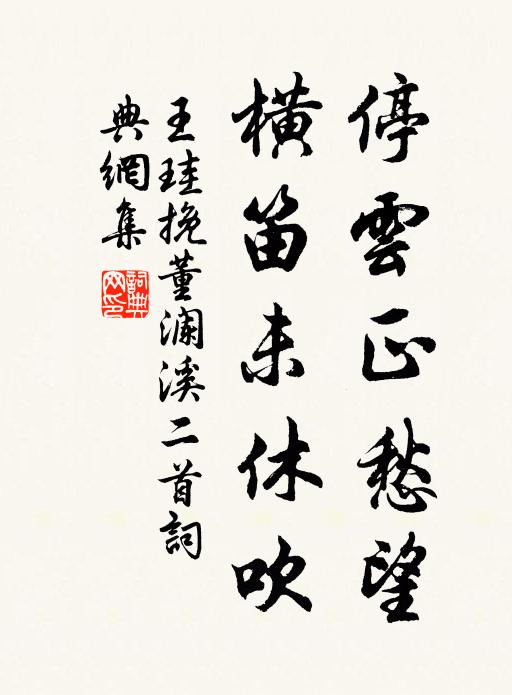 停雲正愁望
橫笛未休吹
王珪挽董澜溪二首詞
典網集
詞典
网印